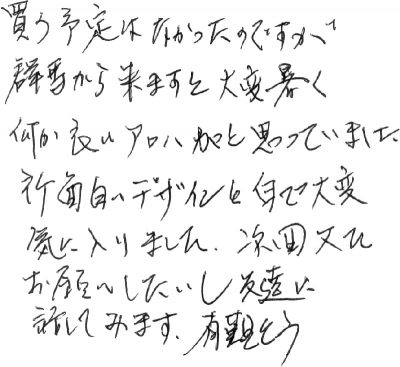 買う予定はなかったのですが
群馬から来ますと大変暑く
何か良いアロハかと思っていました
面白いデザインと色で大変
気に入りました、次回又
お願いしたいし友達に
話してみます、有難とう